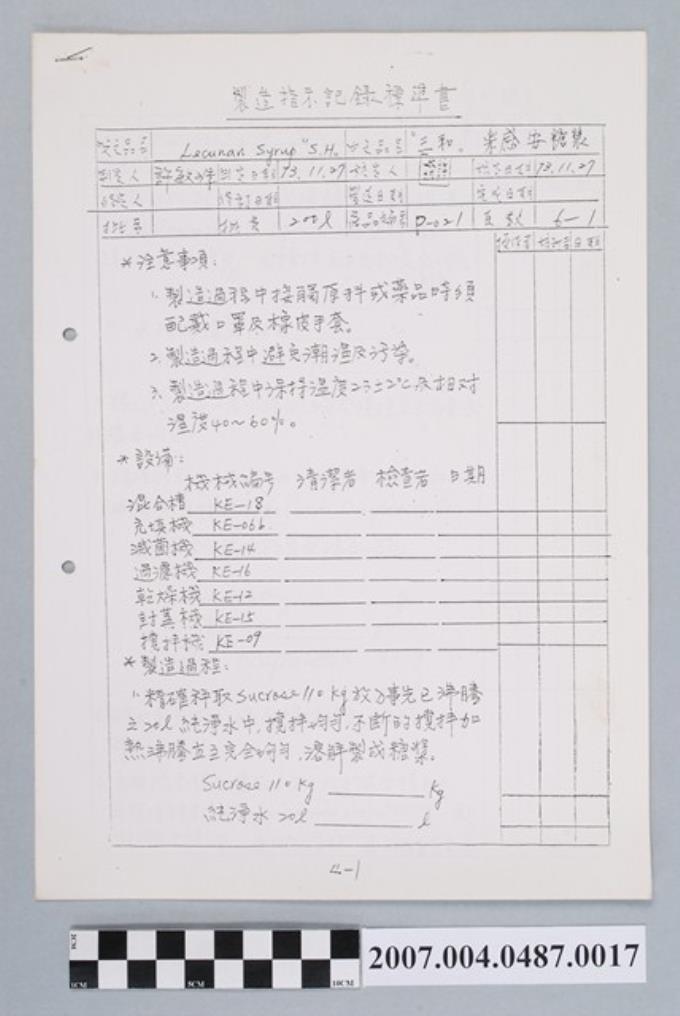 製造指示記錄標準書
Lecunan Syrup "S.H. "三和" 糖漿
制定日期 73.11.27 核定日期 73.11.27
修訂日期 製造日期 完成日期
批號 批量 200l 產品編號 P-021 頁數 6-1
操作者 日期
*注意事項:
1. 製造過程中接觸原料或藥品時須
配戴口罩及橡皮手套。
2. 製造過程中避免潮濕及污染。
3. 製造過程中保持溫度25±2℃及相對
濕度40~60%。
*設備:
機械編號 清潔者 檢查者 日期
混合槽 KE-18
充填機 KE-06b
滅菌機 KE-14
過濾機 KE-16
乾燥機 KE-12
計算機 KE-15
攪拌機 KE-09
*製造過程:
1. 精確秤取Sucrose 110kg放入事先已沸騰
之70l純淨水中,攪拌均勻,不斷的攪拌加
熱沸騰直至完全均勻,溶解製成糖漿。
Sucrose 110kg kg
純淨水 70l l
4-1
1CM
5CM
10CM
2007.004.0487.0017